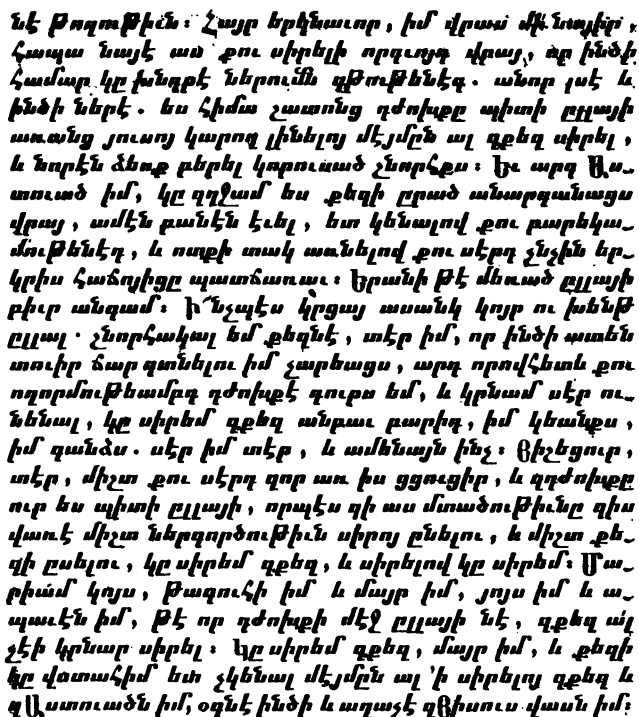 նէ Թողութիւն։ Հայր երկնաւոր, իմ վրաս մի՛ նայիր,
Հապա նայէ աս քու սիրելի որդւոյդ վրայ, որ ինծի
Համար կը խնդրէ ներումն գթութենէգ. անոր լսէ և
ինծի ներէ. ես Հիմա շատոնց դժոխքը պիտի ըլլայի
առանց յուսոյ կարող լինելոյ մէյմըն ալ զքեզ սիրել,
և նորէն ձեռք բերել կորուսած շնորհքս։ Եւ արդ Աս_
տուած իմ, կը զղջամ ես քեզի ըրած անարգանացս
վրայ, ամէն բանէն էւել, ետ կենալով քու բարեկա_
մութենէդ, և ոտքի տակ առնելով քու սէրդ չնչին եր_
կրիս Հաճոյիցը պատճառաւ։ Երանի թէ մեռած ըլլայի
բիւր անգամ։ Ի՞նչպէս կրցայ ասանկ կոյր ու խենթ
ըլլալ. շնորհակալ եմ քեզնէ, տէր իմ, որ ինծի ատեն
տուիր ճար գտնելու իմ չարեացս, արդ որովհետև քու
ողորմութեամբդ դժոխքէ դուրս եմ, և կրնամ սէր ու_
նենալ, կը սիրեմ զքեզ անբաւ բարիդ, իմ կեանքս,
իմ գանձս. սէր իմ տէր, և ամենայն ինչ։ Յիշեցուր,
տէր, միշտ քու սէրդ զոր առ իս ցցուցիր, և զդժոխքը
ուր ես պիտի ըլլայի, որպէս զի աս մտածութիւնը զիս
վառէ միշտ ներգործութիւն սիրոյ ընելու, և միշտ քե_
զի ըսելու, կը սիրեմ զքեզ, և սիրելով կը սիրեմ։ Մա_
րիամ կոյս, Թագուհի իմ և մայր իմ, յոյս իմ և ա_
պաւէն իմ, թէ որ դժոխքի մէջ ըլլայի նէ, զքեզ ալ
չէի կրնար սիրել։ Կը սիրեմ զքեզ, մայր իմ, և քեզի
կը վստահիմ ետ չկենալ մէյմըն ալ ՚ի սիրելոյ զքեզ և
զԱստուածն իմ, օգնէ ինծի և աղաչէ զՅիսուս վասն իմ։